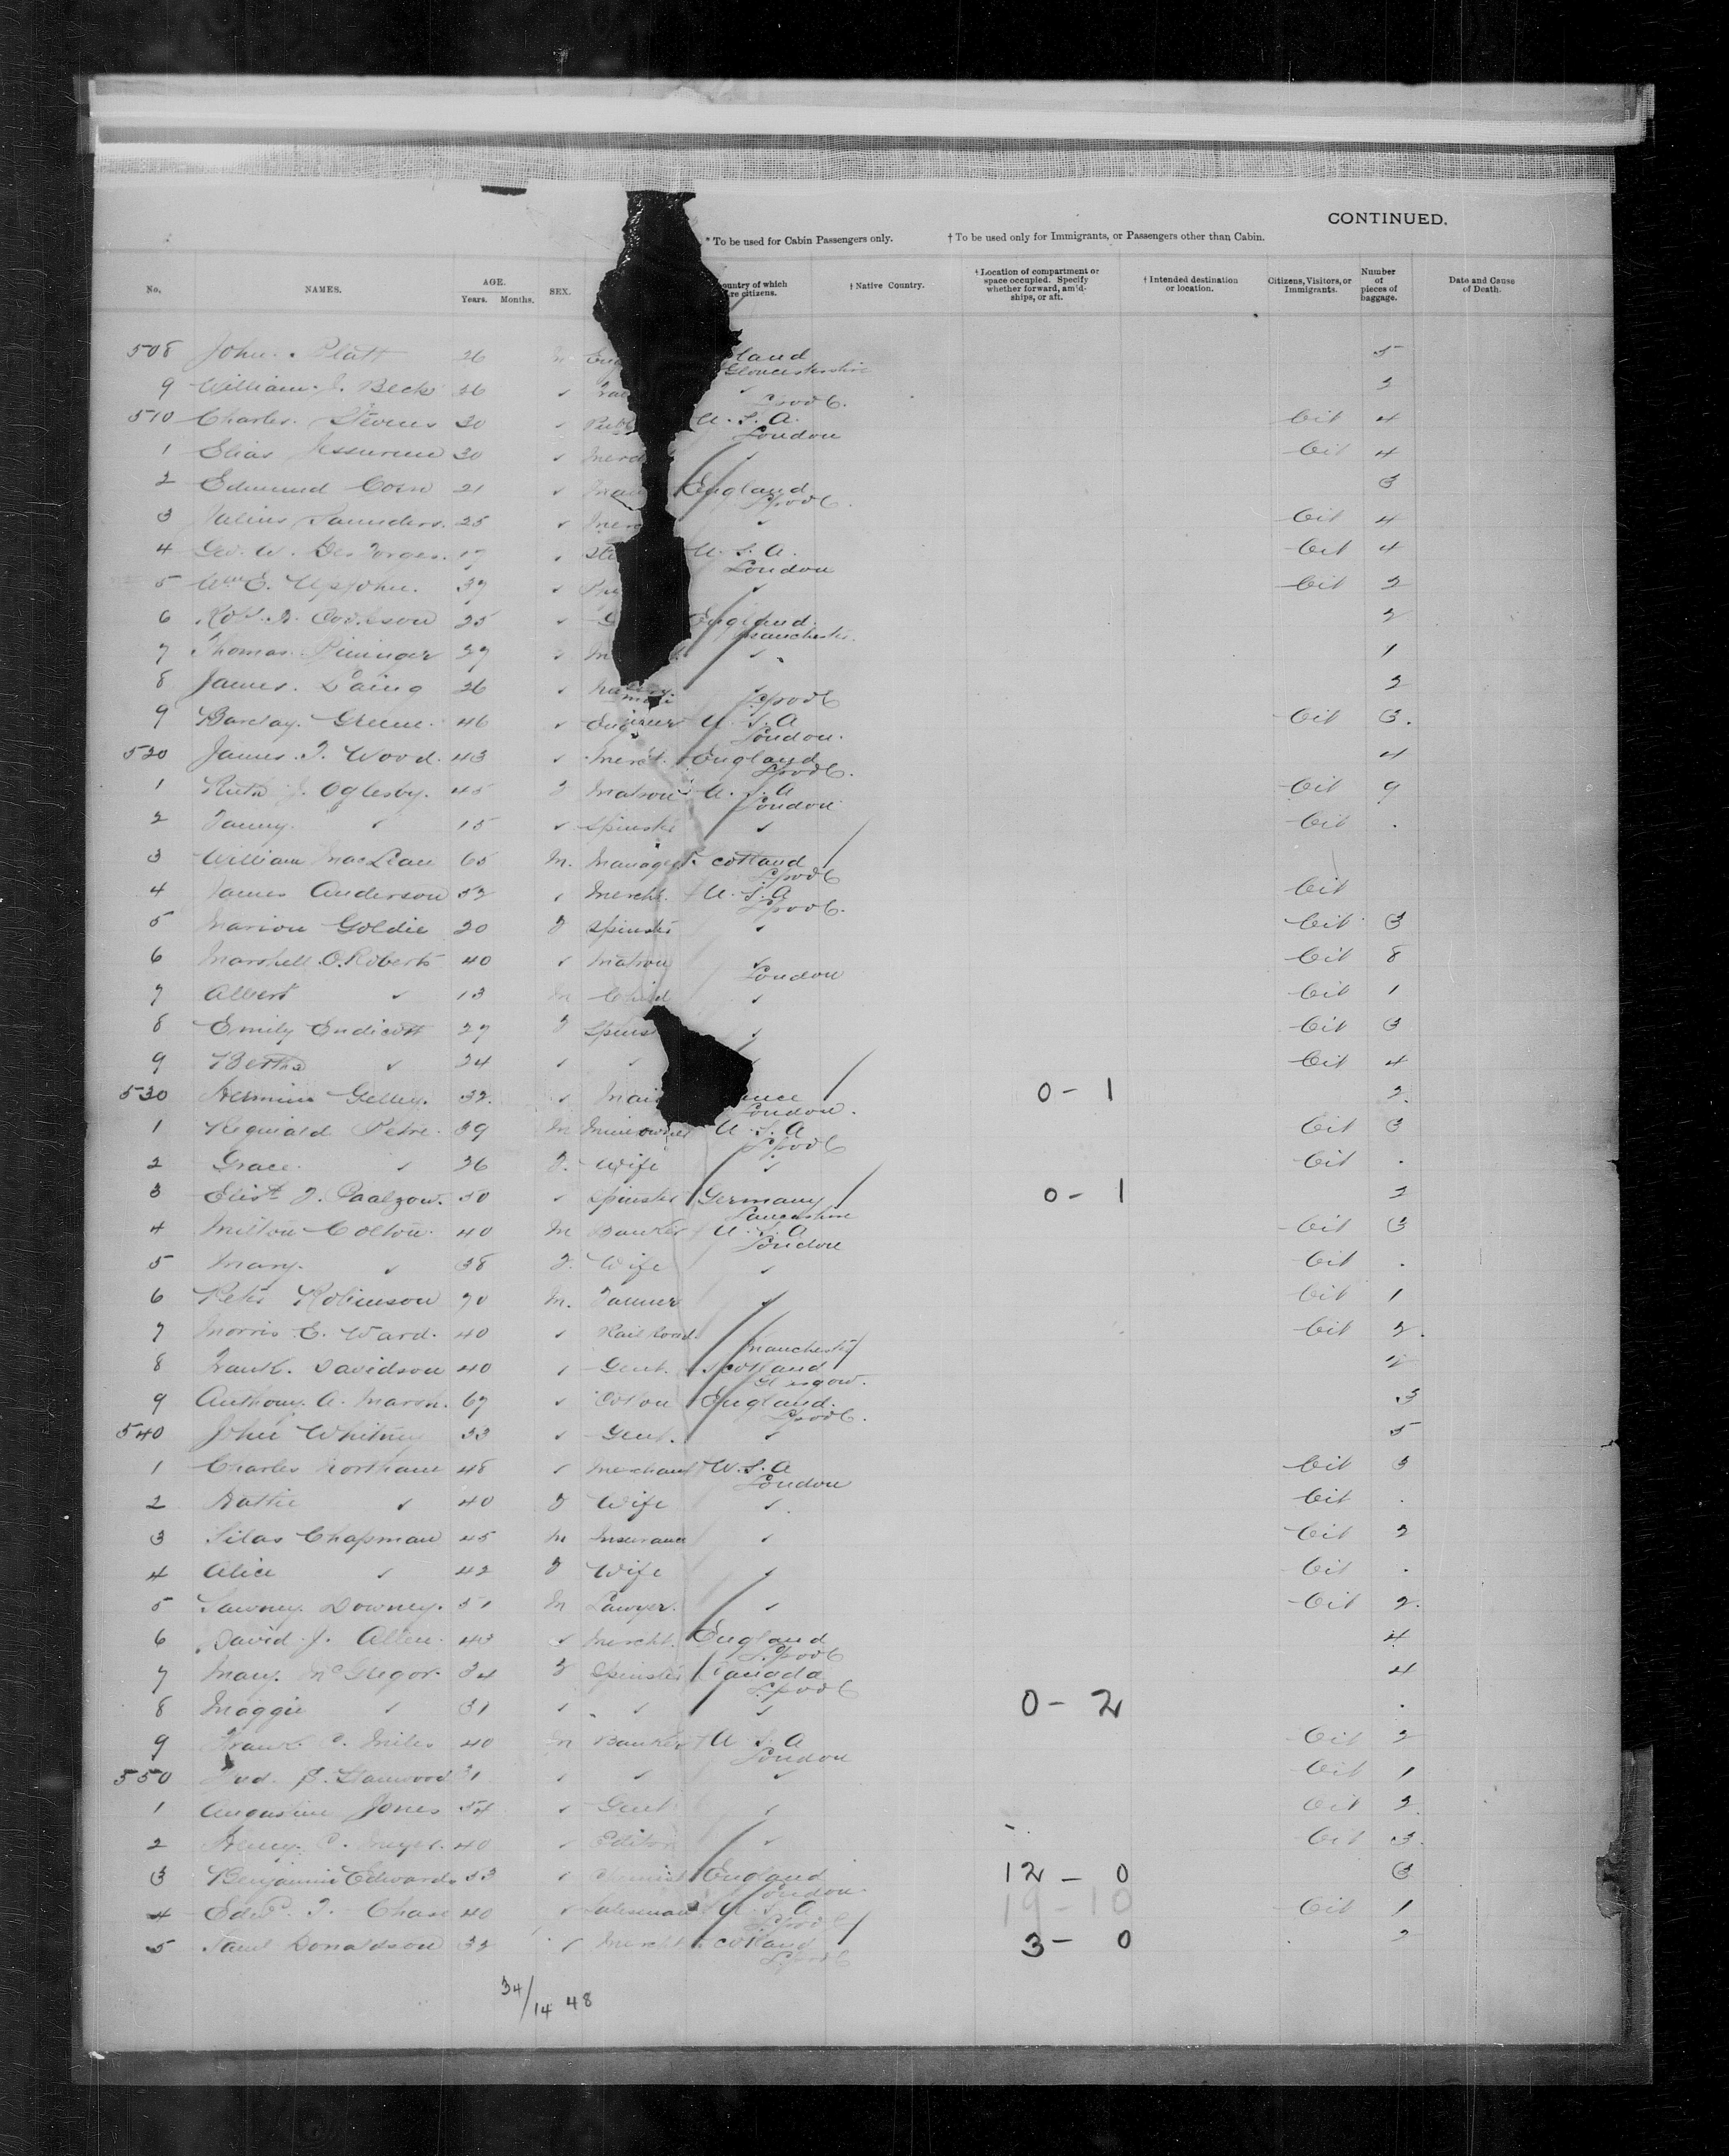 CONTINUED.
* To be used for Cabin Passengers only. † To be used only for Immigrants, or Passengers other than Cabin.
No. NAMES. AGE. Years. Months. SEX. ountry of which re citizens. † Native Country. † Location of compartment or space occupied. Specify whether forward, am'd-ships, or aft. † Intended destination or location. Citizens, Visitors, or Immigrants. Number of pieces of baggage. Date and Cause of Death.
508 John Platt 26 M land 5
Gloucestershire
9 William J. Beck 36 ✓ ✓ 2
L'pool
510 Charles Stevens 30 ✓ U.S.A. Cit 4
London
1 Elias Jessurun 30 ✓ Merc ✓ Cit 4
2 Edmund 21 ✓ England 3
L'pool
3 Julius Saunders 25 ✓ Merc ✓ Cit 4
4 Geo. W. Des Forges 17 ✓ U.S.A. Cit 4
London
5 Wm E. Upjohn 37 ✓ ✓ Cit 2
6 Robt 25 ✓ England 2
Manchester
7 Thomas 27 ✓ ✓ 1
8 James Laing 26 ✓ ✓ 2
L'pool
9 Barclay Greene 46 ✓ Engineer U.S.A Cit 3
London
520 James T. Wood 43 ✓ Mercht England 4
L'pool
1 Ruth J. Oglesby 45 F Matron U.S.A Cit 9
London
2 Fanny ✓ 15 ✓ Spinster ✓ Cit .
3 William MacLean 65 M. Manager Scotland
L'pool
4 James Anderson 52 ✓ Mercht. U.S.A Cit
L'pool
5 Marion Goldie 20 F Spinster ✓ Cit 3
6 Marshall O. Roberts 40 ✓ Matron ✓ Cit 8
London
7 Albert ✓ 13 M Child ✓ Cit 1
8 Emily Endicott 27 F Spins ✓ Cit 3
9 Bertha ✓ 24 ✓ ✓ ✓ Cit 4
530 Hermine Gelley 32 ✓ Mai nce 0 - 1 2
London
1 Reginald Petre 39 M Mineowner U.S.A Cit 3
L'pool
2 Grace ✓ 26 F. Wife ✓ Cit .
3 Elisth J. Paalzow 50 ✓ Spinster Germany 0 - 1 2
Lancashire
4 Milton Colton 40 M Banker U.S.A Cit 3
London
5 Mary ✓ 38 F. Wife ✓ Cit .
6 Peter Robinson 70 M. Tanner ✓ Cit 1
7 Morris E. Ward 40 ✓ Rail Road ✓ Cit 2
Manchester
8 Frank Davidson 40 ✓ Gent. Scotland 2
Glasgow
9 Anthony A. Marsh 67 ✓ Cotton England 3
L'pool
540 John Whitney 33 ✓ Gent. ✓ 5
1 Charles Northam 48 ✓ Merchant U.S.A Cit 3
London
2 Hattie ✓ 40 F Wife ✓ Cit .
3 Silas Chapman 45 M Insurance ✓ Cit 2
4 Alice ✓ 42 F Wife ✓ Cit .
5 Downey 51 M Lawyer ✓ Cit 2
6 David J. Allen 43 ✓ Mercht. England 4
L'pool
7 Mary McGregor 34 F Spinster Canada 4
L'pool
8 Maggie ✓ 31 ✓ ✓ ✓ 0 - 2 .
9 Frank C. Miles 40 M Banker U.S.A Cit 2
London
550 Fred. S. Stanwood 31 ✓ ✓ ✓ Cit 1
1 Augustine Jones 54 ✓ Gent ✓ Cit 2
2 Henry C. Meyer 40 ✓ Editor ✓ Cit 3
3 Benjamin Edwards 33 ✓ Chemist England 12 - 0 3
London 19 - 10
4 Edwd. T. Chase 40 ✓ Salesman U.S.A Cit 1
L'pool
5 Saml Donaldson 32 ✓ Mercht Scotland 3 - 0 2
L'pool
34/14 48